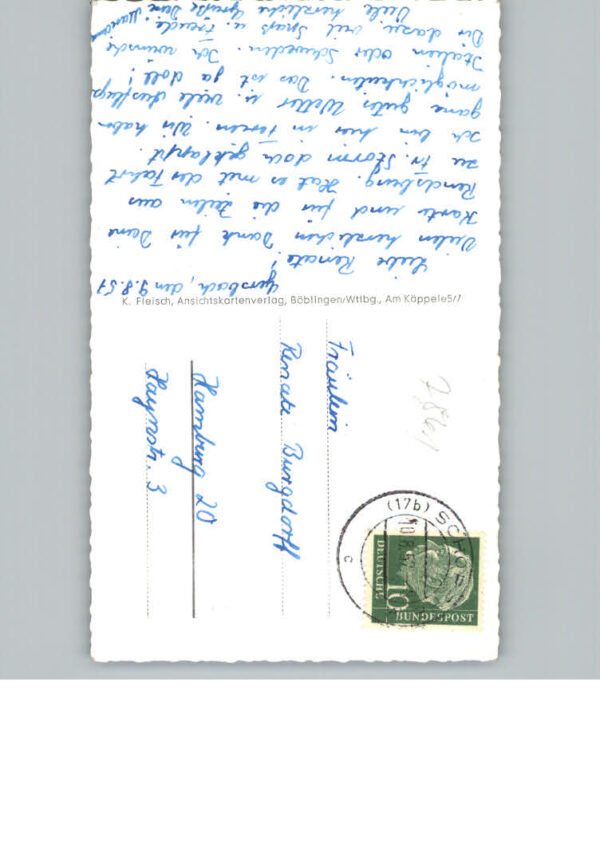 Gersbach, den 9.8.57
Liebe Renate!
Vielen herzlichen Dank für Deine
Karte und für die Zeilen aus
Rendsburg. Hat es mit der Fahrt
zu Fr. Storm doch geklappt.
Ich bin hier in Ferien. Wir haben
ganz gutes Wetter u. viele Ausflugs
möglichkeiten. Das ist ja doll!
Italien oder Schweden. Ich wünsche
Dir dazu viel Spass u. Freude.
Viele herzliche Grüße Deine
K. Fleisch, Ansichtskartenverlag, Böblingen/Wttbg., Am Käppele 5/7
Fräulein
Renate Burgdorff
Hamburg 20
Haynstr. 3
(17b) SCHOPF
10.8.57
c
10
DEUTSCHE
BUNDESPOST